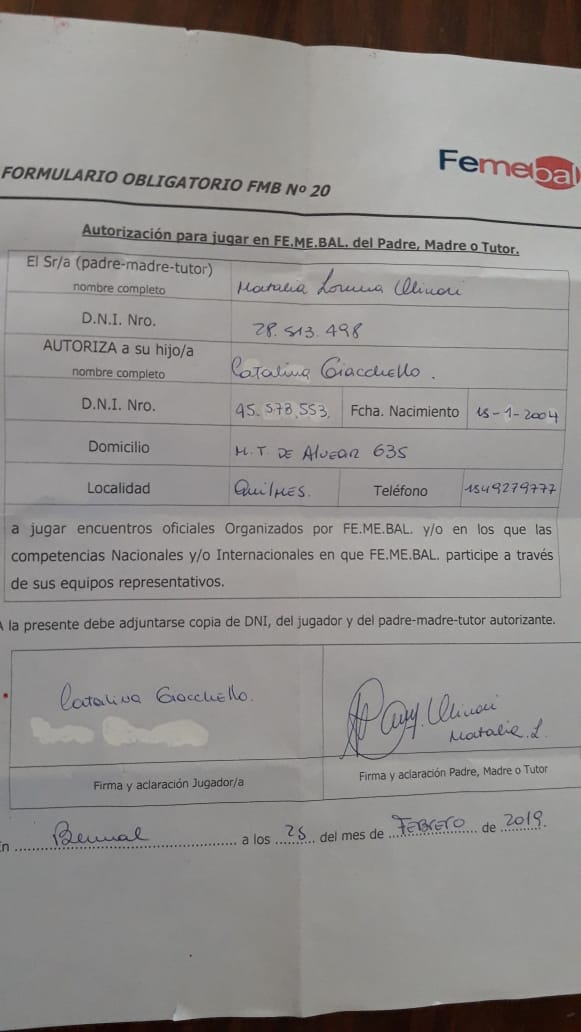 Femebal
FORMULARIO OBLIGATORIO FMB Nº 20
Autorización para jugar en FE.ME.BAL. del Padre, Madre o Tutor.
El Sr/a (padre-madre-tutor)
nombre completo
Natalia Lorena
D.N.I. Nro.
28.513.498
AUTORIZA a su hijo/a
nombre completo
Catalina Giacchello.
D.N.I. Nro.
45.573.553.
Fcha. Nacimiento
15-1-2004
Domicilio
M.T. DE Alvear 635
Localidad
Quilmes.
Teléfono
1549279777
a jugar encuentros oficiales Organizados por FE.ME.BAL. y/o en los que las
competencias Nacionales y/o Internacionales en que FE.ME.BAL. participe a través
de sus equipos representativos.
A la presente debe adjuntarse copia de DNI, del jugador y del padre-madre-tutor autorizante.
Catalina Giacchello.
Natalia L.
Firma y aclaración Jugador/a
Firma y aclaración Padre, Madre o Tutor
En Bernal a los 25 del mes de FEBRERO de 2019.